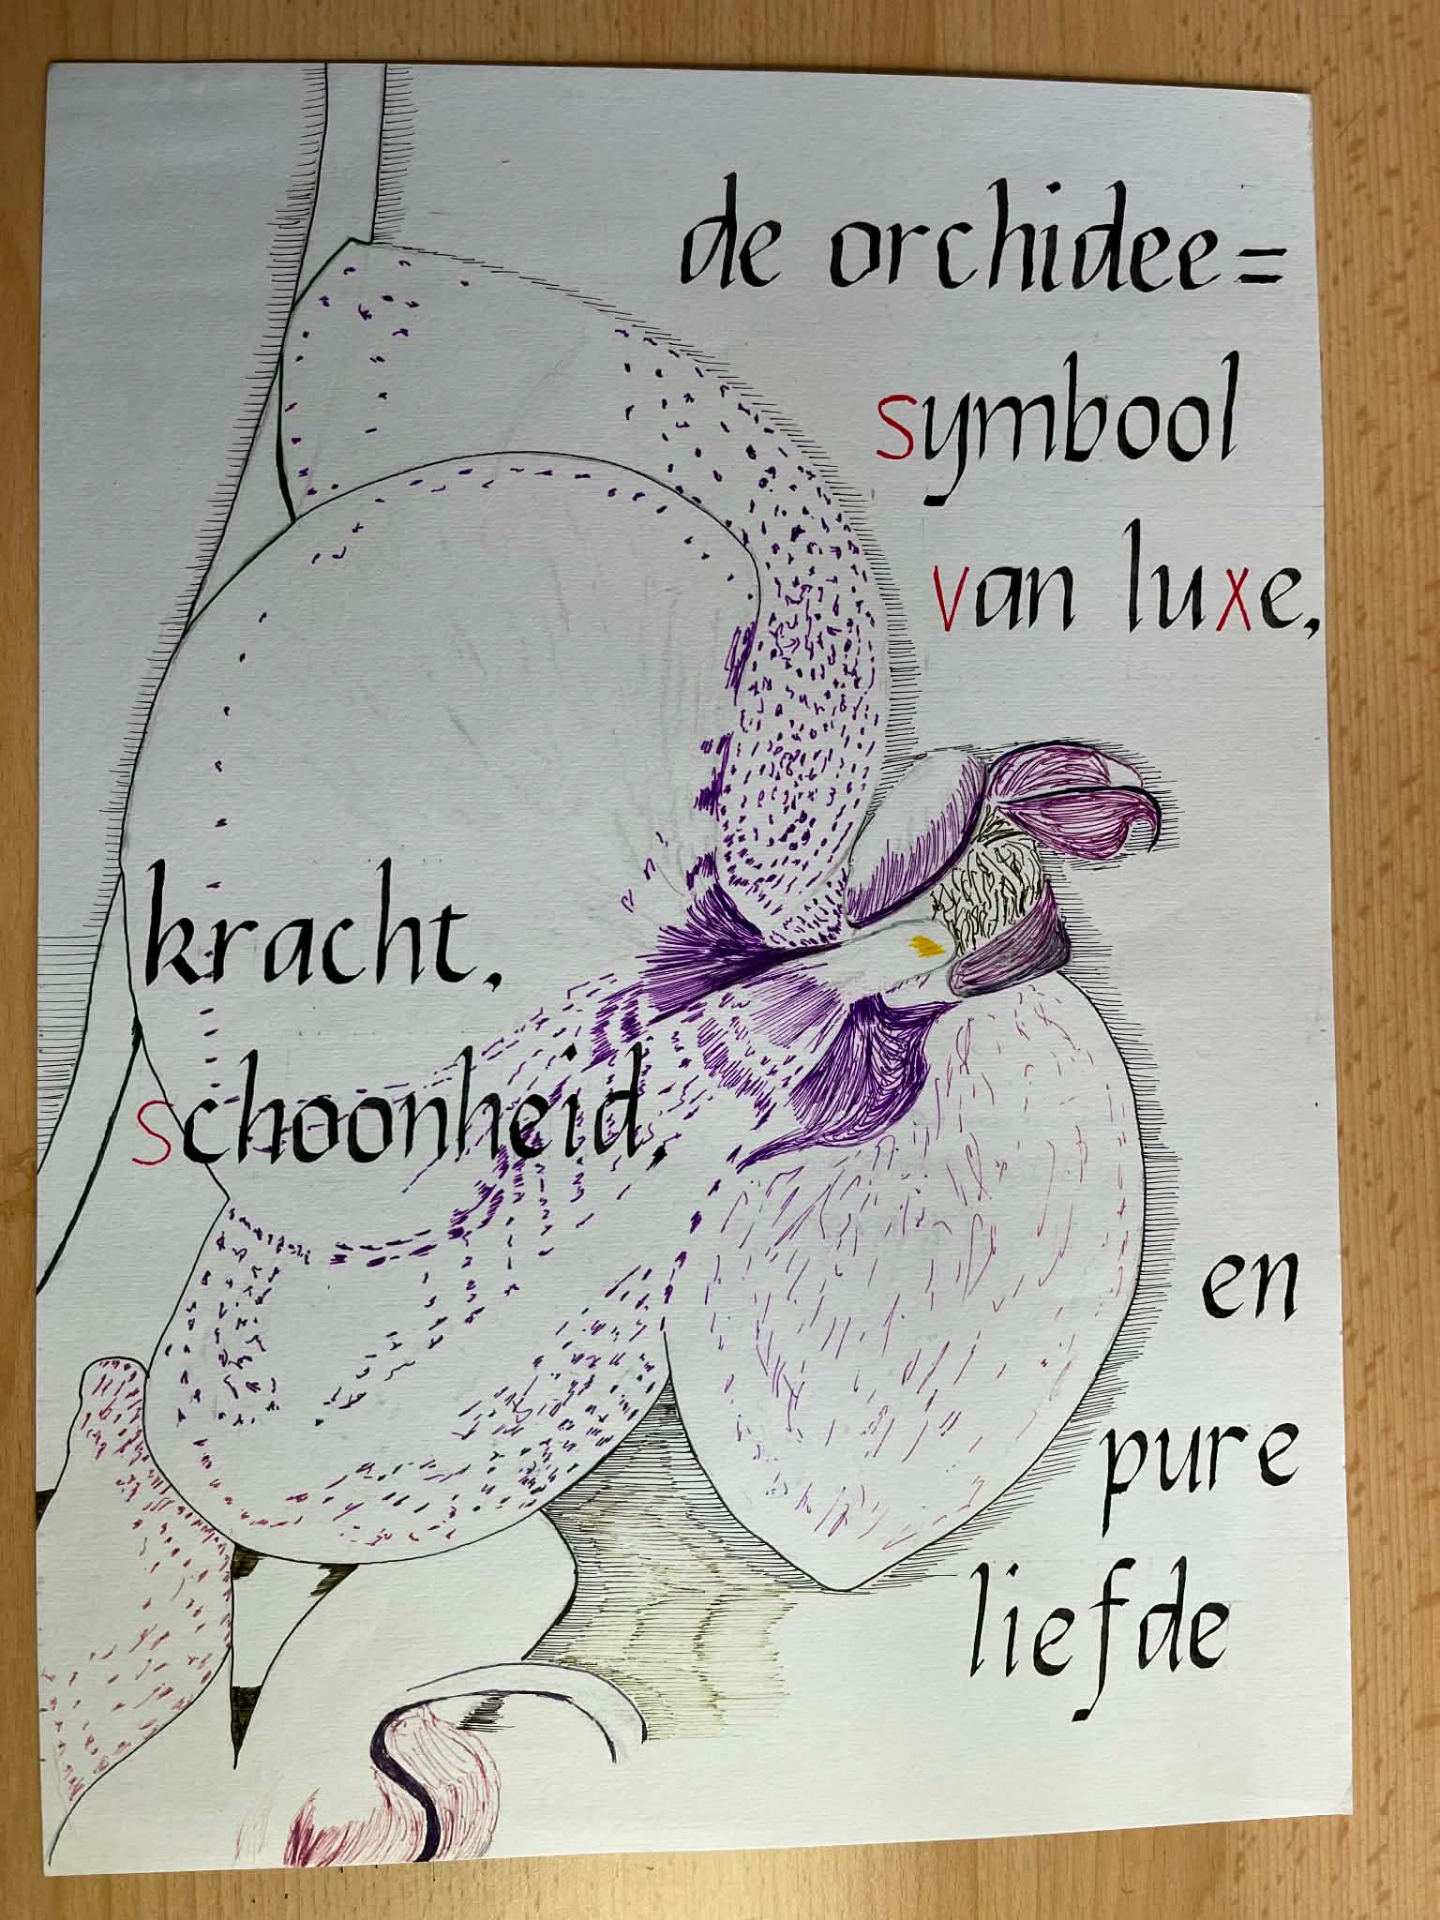 de orchidee =
symbool
van luxe,
kracht,
schoonheid,
en
pure
liefde